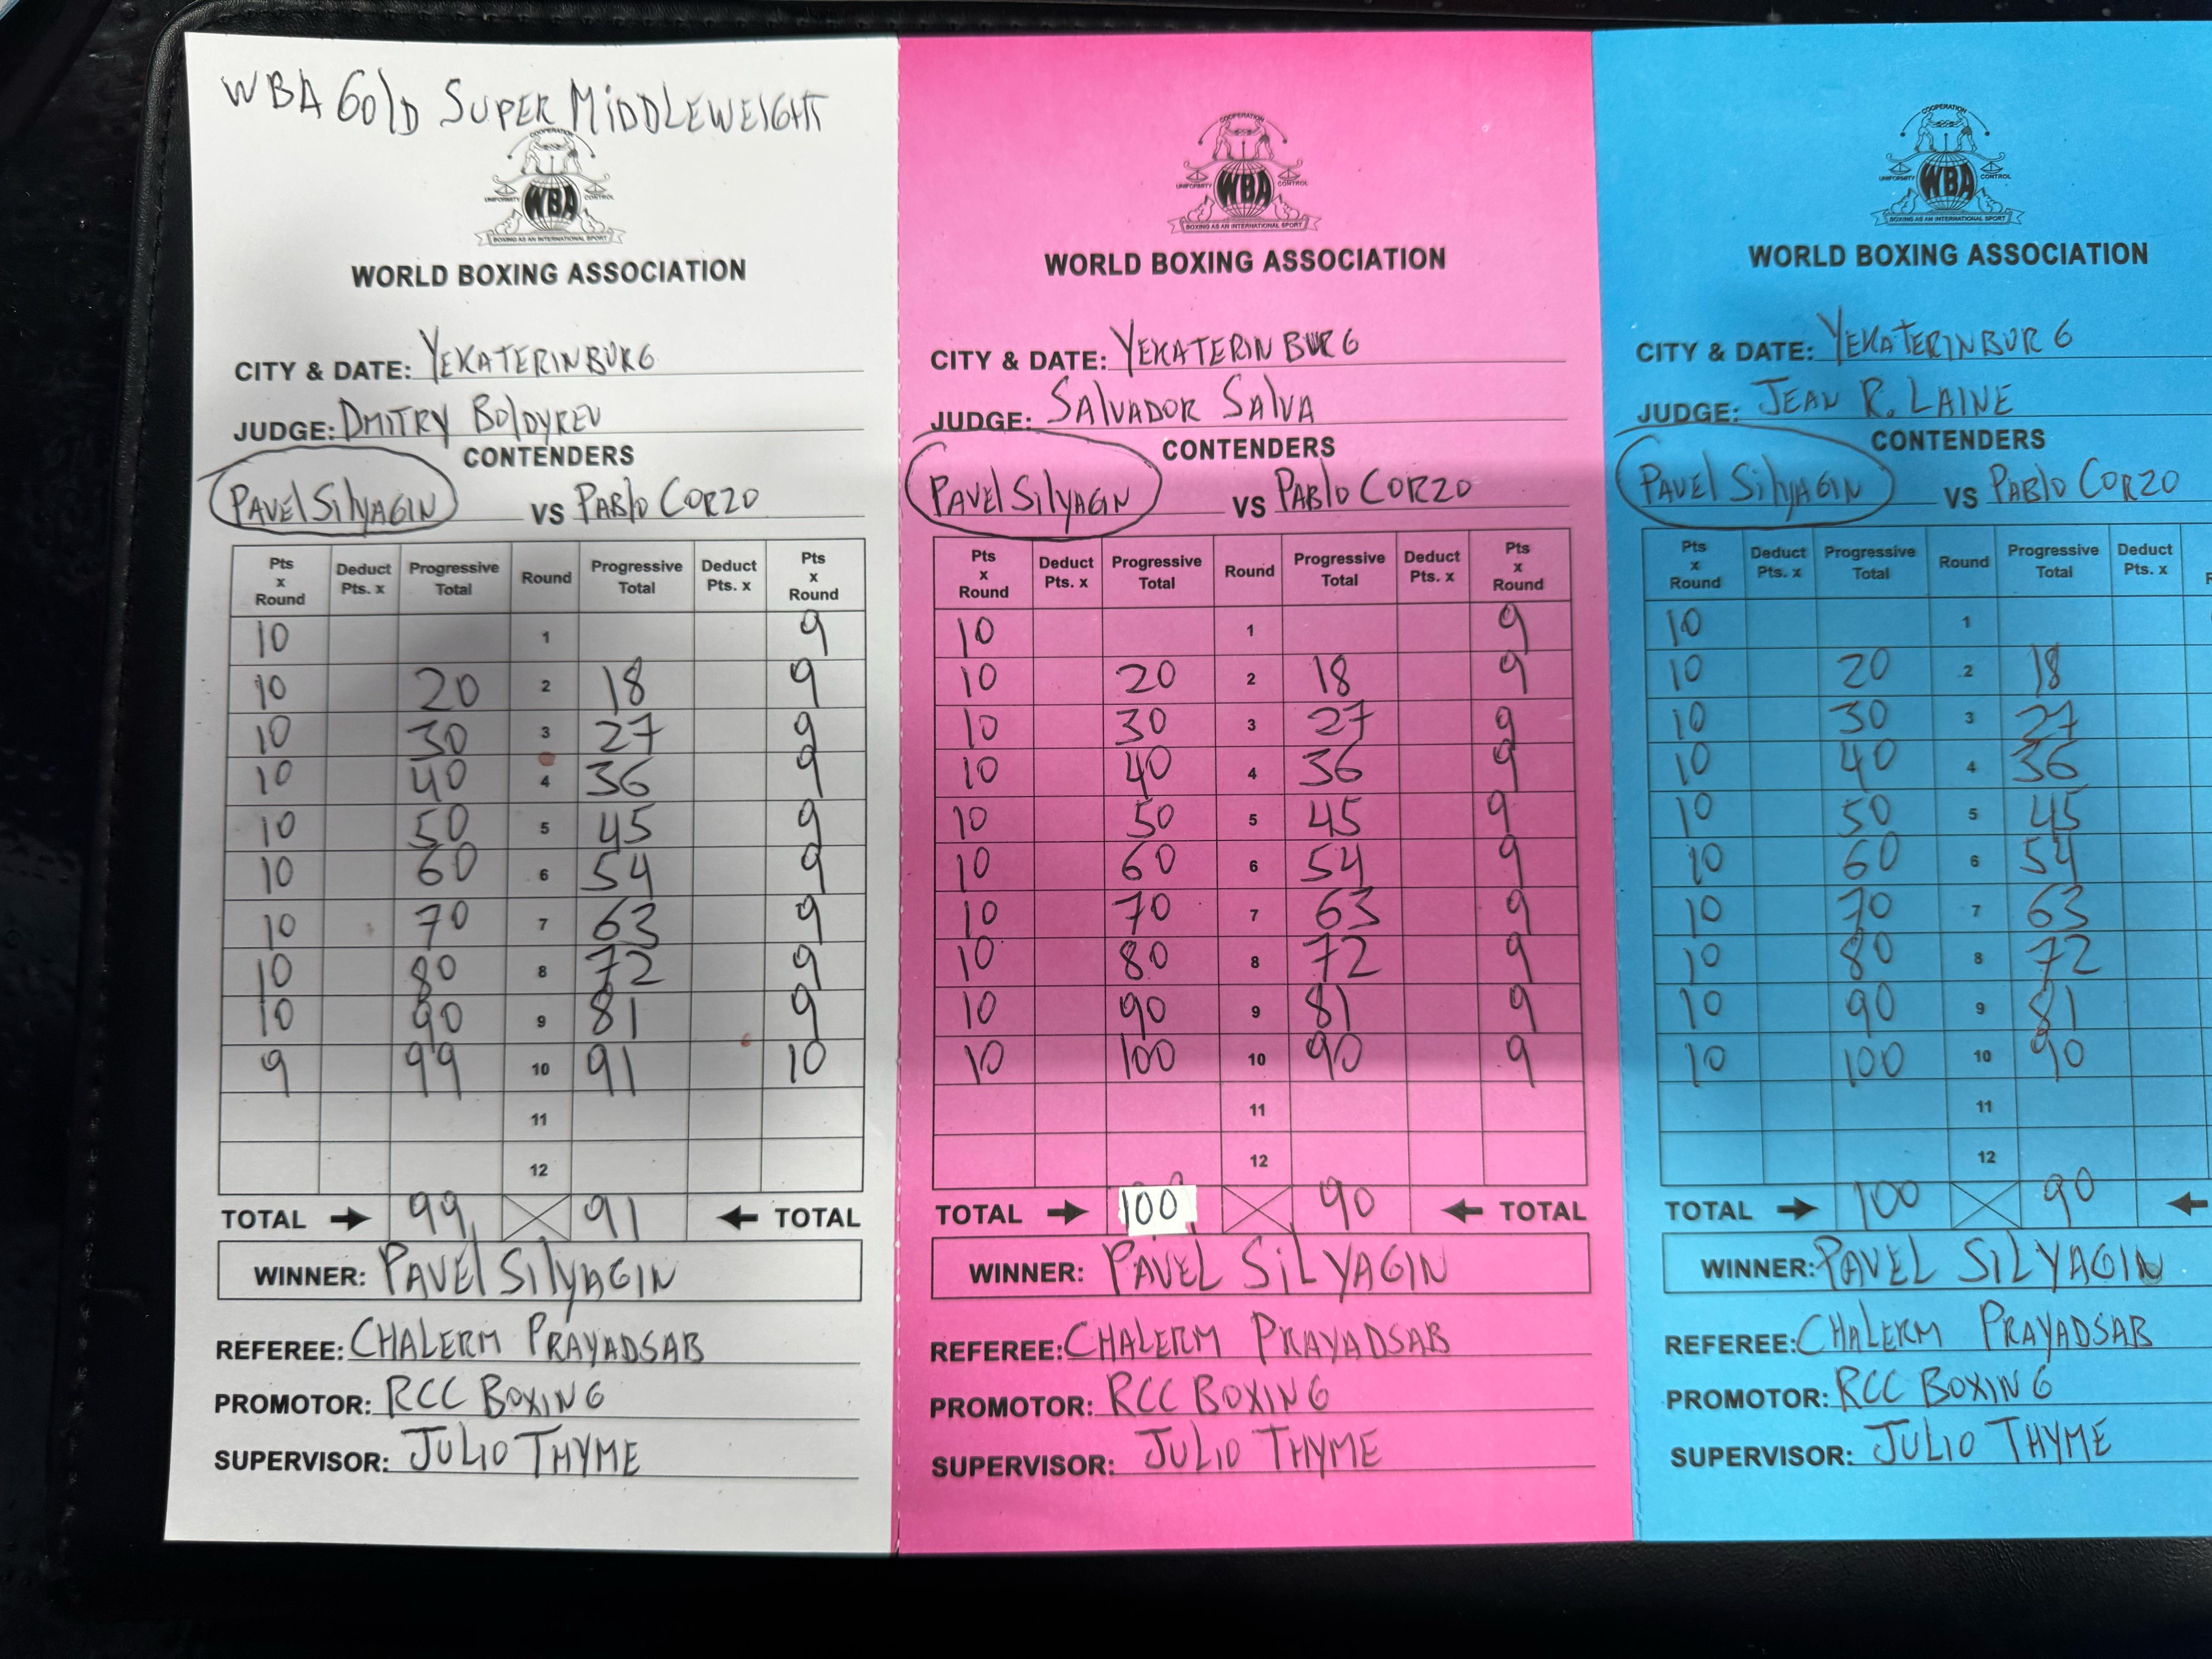 WBA Gold Super Middleweight
COOPERATION
UNIFORMITY WBA CONTROL
BOXING AS AN INTERNATIONAL SPORT
WORLD BOXING ASSOCIATION
CITY & DATE: YEKATERINBURG
JUDGE: DMITRY BOLDYREV
CONTENDERS
PAVEL SILYAGIN VS PABLO CORZO
Pts x Round Deduct Pts. x Progressive Total Round Progressive Total Deduct Pts. x Pts x Round
10 1 9
10 20 2 18 9
10 30 3 27 9
10 40 4 36 9
10 50 5 45 9
10 60 6 54 9
10 70 7 63 9
10 80 8 72 9
10 90 9 81 9
9 99 10 91 10
11
12
TOTAL 99 91 TOTAL
WINNER: PAVEL SILYAGIN
REFEREE: CHALERM PRAYADSAB
PROMOTOR: RCC BOXING
SUPERVISOR: JULIO THYME
COOPERATION
UNIFORMITY WBA CONTROL
BOXING AS AN INTERNATIONAL SPORT
WORLD BOXING ASSOCIATION
CITY & DATE: YEKATERINBURG
JUDGE: SALVADOR SALVA
CONTENDERS
PAVEL SILYAGIN VS PABLO CORZO
Pts x Round Deduct Pts. x Progressive Total Round Progressive Total Deduct Pts. x Pts x Round
10 1 9
10 20 2 18 9
10 30 3 27 9
10 40 4 36 9
10 50 5 45 9
10 60 6 54 9
10 70 7 63 9
10 80 8 72 9
10 90 9 81 9
10 100 10 90 9
11
12
TOTAL 100 90 TOTAL
WINNER: PAVEL SILYAGIN
REFEREE: CHALERM PRAYADSAB
PROMOTOR: RCC BOXING
SUPERVISOR: JULIO THYME
COOPERATION
UNIFORMITY WBA CONTROL
BOXING AS AN INTERNATIONAL SPORT
WORLD BOXING ASSOCIATION
CITY & DATE: YEKATERINBURG
JUDGE: JEAN R. LAINE
CONTENDERS
PAVEL SILYAGIN VS PABLO CORZO
Pts x Round Deduct Pts. x Progressive Total Round Progressive Total Deduct Pts. x
10 1
10 20 2 18
10 30 3 27
10 40 4 36
10 50 5 45
10 60 6 54
10 70 7 63
10 80 8 72
10 90 9 81
10 100 10 90
11
12
TOTAL 100 90
WINNER: PAVEL SILYAGIN
REFEREE: CHALERM PRAYADSAB
PROMOTOR: RCC BOXING
SUPERVISOR: JULIO THYME